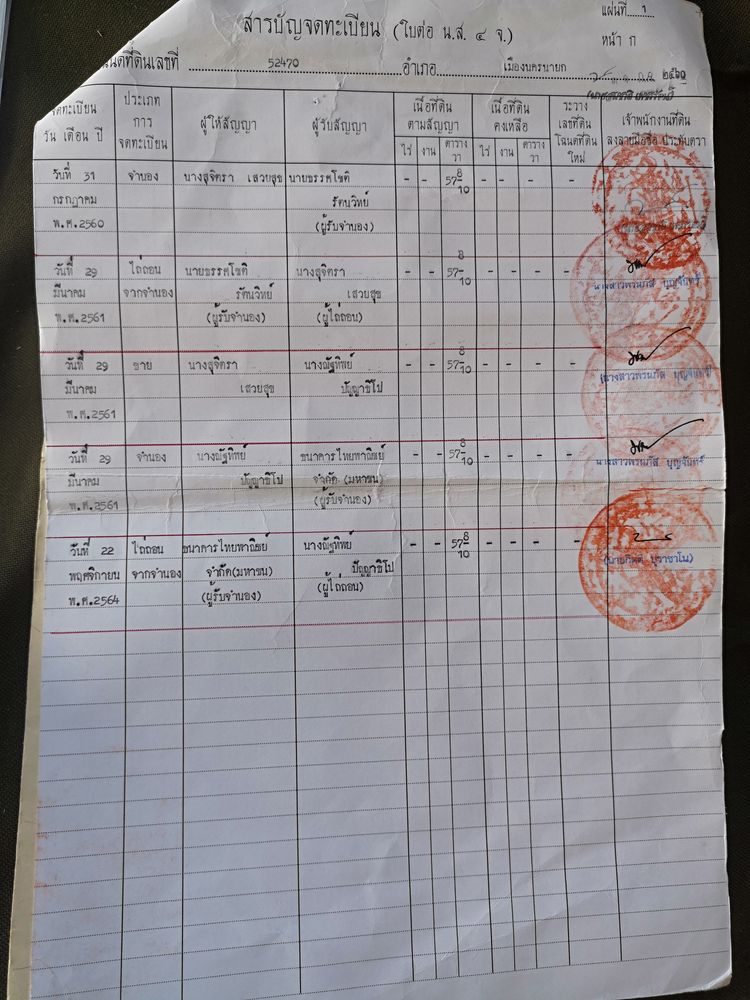 สารบัญจดทะเบียน (ใบต่อ น.ส. ๔ จ.)
แผ่นที่ 1
หน้า ก
ที่ดินเลขที่ 52470 อำเภอ เมืองนครนายก
จดทะเบียน วัน เดือน ปี
ประเภท การ จดทะเบียน
ผู้ให้สัญญา
ผู้รับสัญญา
เนื้อที่ดิน ตามสัญญา
ไร่ งาน ตาราง วา
เนื้อที่ดิน คงเหลือ
ไร่ งาน ตาราง วา
ระวาง เลขที่ดิน โฉนดที่ดิน ใหม่
เจ้าพนักงานที่ดิน ลงลายมือชื่อ ประทับตรา
วันที่ 31 จำนอง นางสุจิตรา เสวยสุข นายธรรคโชติ - - 57 8/10 - - - -
กรกฎาคม รัตนวิทย์
พ.ศ.2560 (ผู้รับจำนอง)
วันที่ 29 ไถ่ถอน นายธรรคโชติ นางสุจิตรา - - 57 8/10 - - - -
มีนาคม จากจำนอง รัตนวิทย์ เสวยสุข
พ.ศ.2561 (ผู้รับจำนอง) (ผู้ไถ่ถอน)
วันที่ 29 ขาย นางสุจิตรา นางณัฐทิพย์ - - 57 8/10 - - - -
มีนาคม เสวยสุข ปัญญาชิโป
พ.ศ.2561
วันที่ 29 จำนอง นางณัฐทิพย์ ธนาคารไทยพาณิชย์ - - 57 8/10 - - - -
มีนาคม ปัญญาชิโป จำกัด (มหาชน)
พ.ศ.2561 (ผู้รับจำนอง)
วันที่ 22 ไถ่ถอน ธนาคารไทยพาณิชย์ นางณัฐทิพย์ - - 57 8/10 - - - -
พฤศจิกายน จากจำนอง จำกัด(มหาชน) ปัญญาชิโป
พ.ศ.2564 (ผู้รับจำนอง) (ผู้ไถ่ถอน)